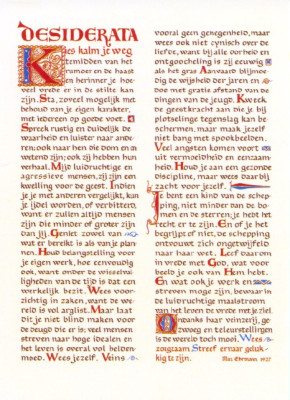 DESIDERATA
Kies kalm je weg
temidden van het
rumoer en de haast
en herinner je hoe-
veel vrede er in de stilte kan
zijn. Sta, zoveel mogelijk met
behoud van je eigen karakter,
met iedereen op goede voet.
Spreek rustig en duidelijk de
waarheid en luister naar ande-
ren; ook naar hen die dom en on-
wetend zijn; ook zij hebben hun
verhaal. Mijd luidruchtige en
agressieve mensen, zij zijn een
kwelling voor de geest. Indien
je je met anderen vergelijkt, kan
je ijdel worden, of verbitterd,
want er zullen altijd mensen
zijn die minder of groter zijn
dan jij. Geniet zowel van
wat er bereikt is als van je plan-
nen. Houd belangstelling voor
je eigen werk, hoe eenvoudig
ook, want onder de wisselval-
ligheden van de tijd is dat een
werkelijk bezit. Wees voor-
zichtig in zaken, want de we-
reld is vol arglist. Maar laat
dit je niet blind maken voor
de deugd die er is: veel mensen
streven naar hoge idealen en
het leven is overal vol helden-
moed. Wees jezelf. Veins
vooral geen genegenheid, maar
wees ook niet cynisch over de
liefde, want bij alle dorheid en
ontgoocheling is zij eeuwig
als het gras. Aanvaard blijmoe-
dig de wijsheid der jaren en
doe met gratie afstand van de
dingen van de jeugd. Kweek
de geestkracht aan die je bij
plotselinge tegenslag kan be-
schermen, maar maak jezelf
niet bang met spookbeelden.
Veel angsten komen voort
uit vermoeidheid en eenzaam-
heid. Houd je aan een gezonde
discipline, maar wees daarbij
zacht voor jezelf.
Je bent een kind van de schep-
ping, niet minder dan de bo-
men en de sterren; je hebt het
recht er te zijn. En of je het
begrijpt of niet, de schepping
ontvouwt zich ongetwijfeld
naar haar wet. Leef daarom
in vrede met God, wat voor
beeld je ook van Hem hebt.
En wat ook je werk en
streven moge zijn, bewaar in
de luidruchtige maalstroom
van het leven de vrede met je ziel.
Ondanks haar veinzerij, ge-
zwoeg en teleurstellingen
is de wereld toch mooi. Wees
zorgzaam. Streef ernaar geluk-
kig te zijn. Max Ehrmann 1927